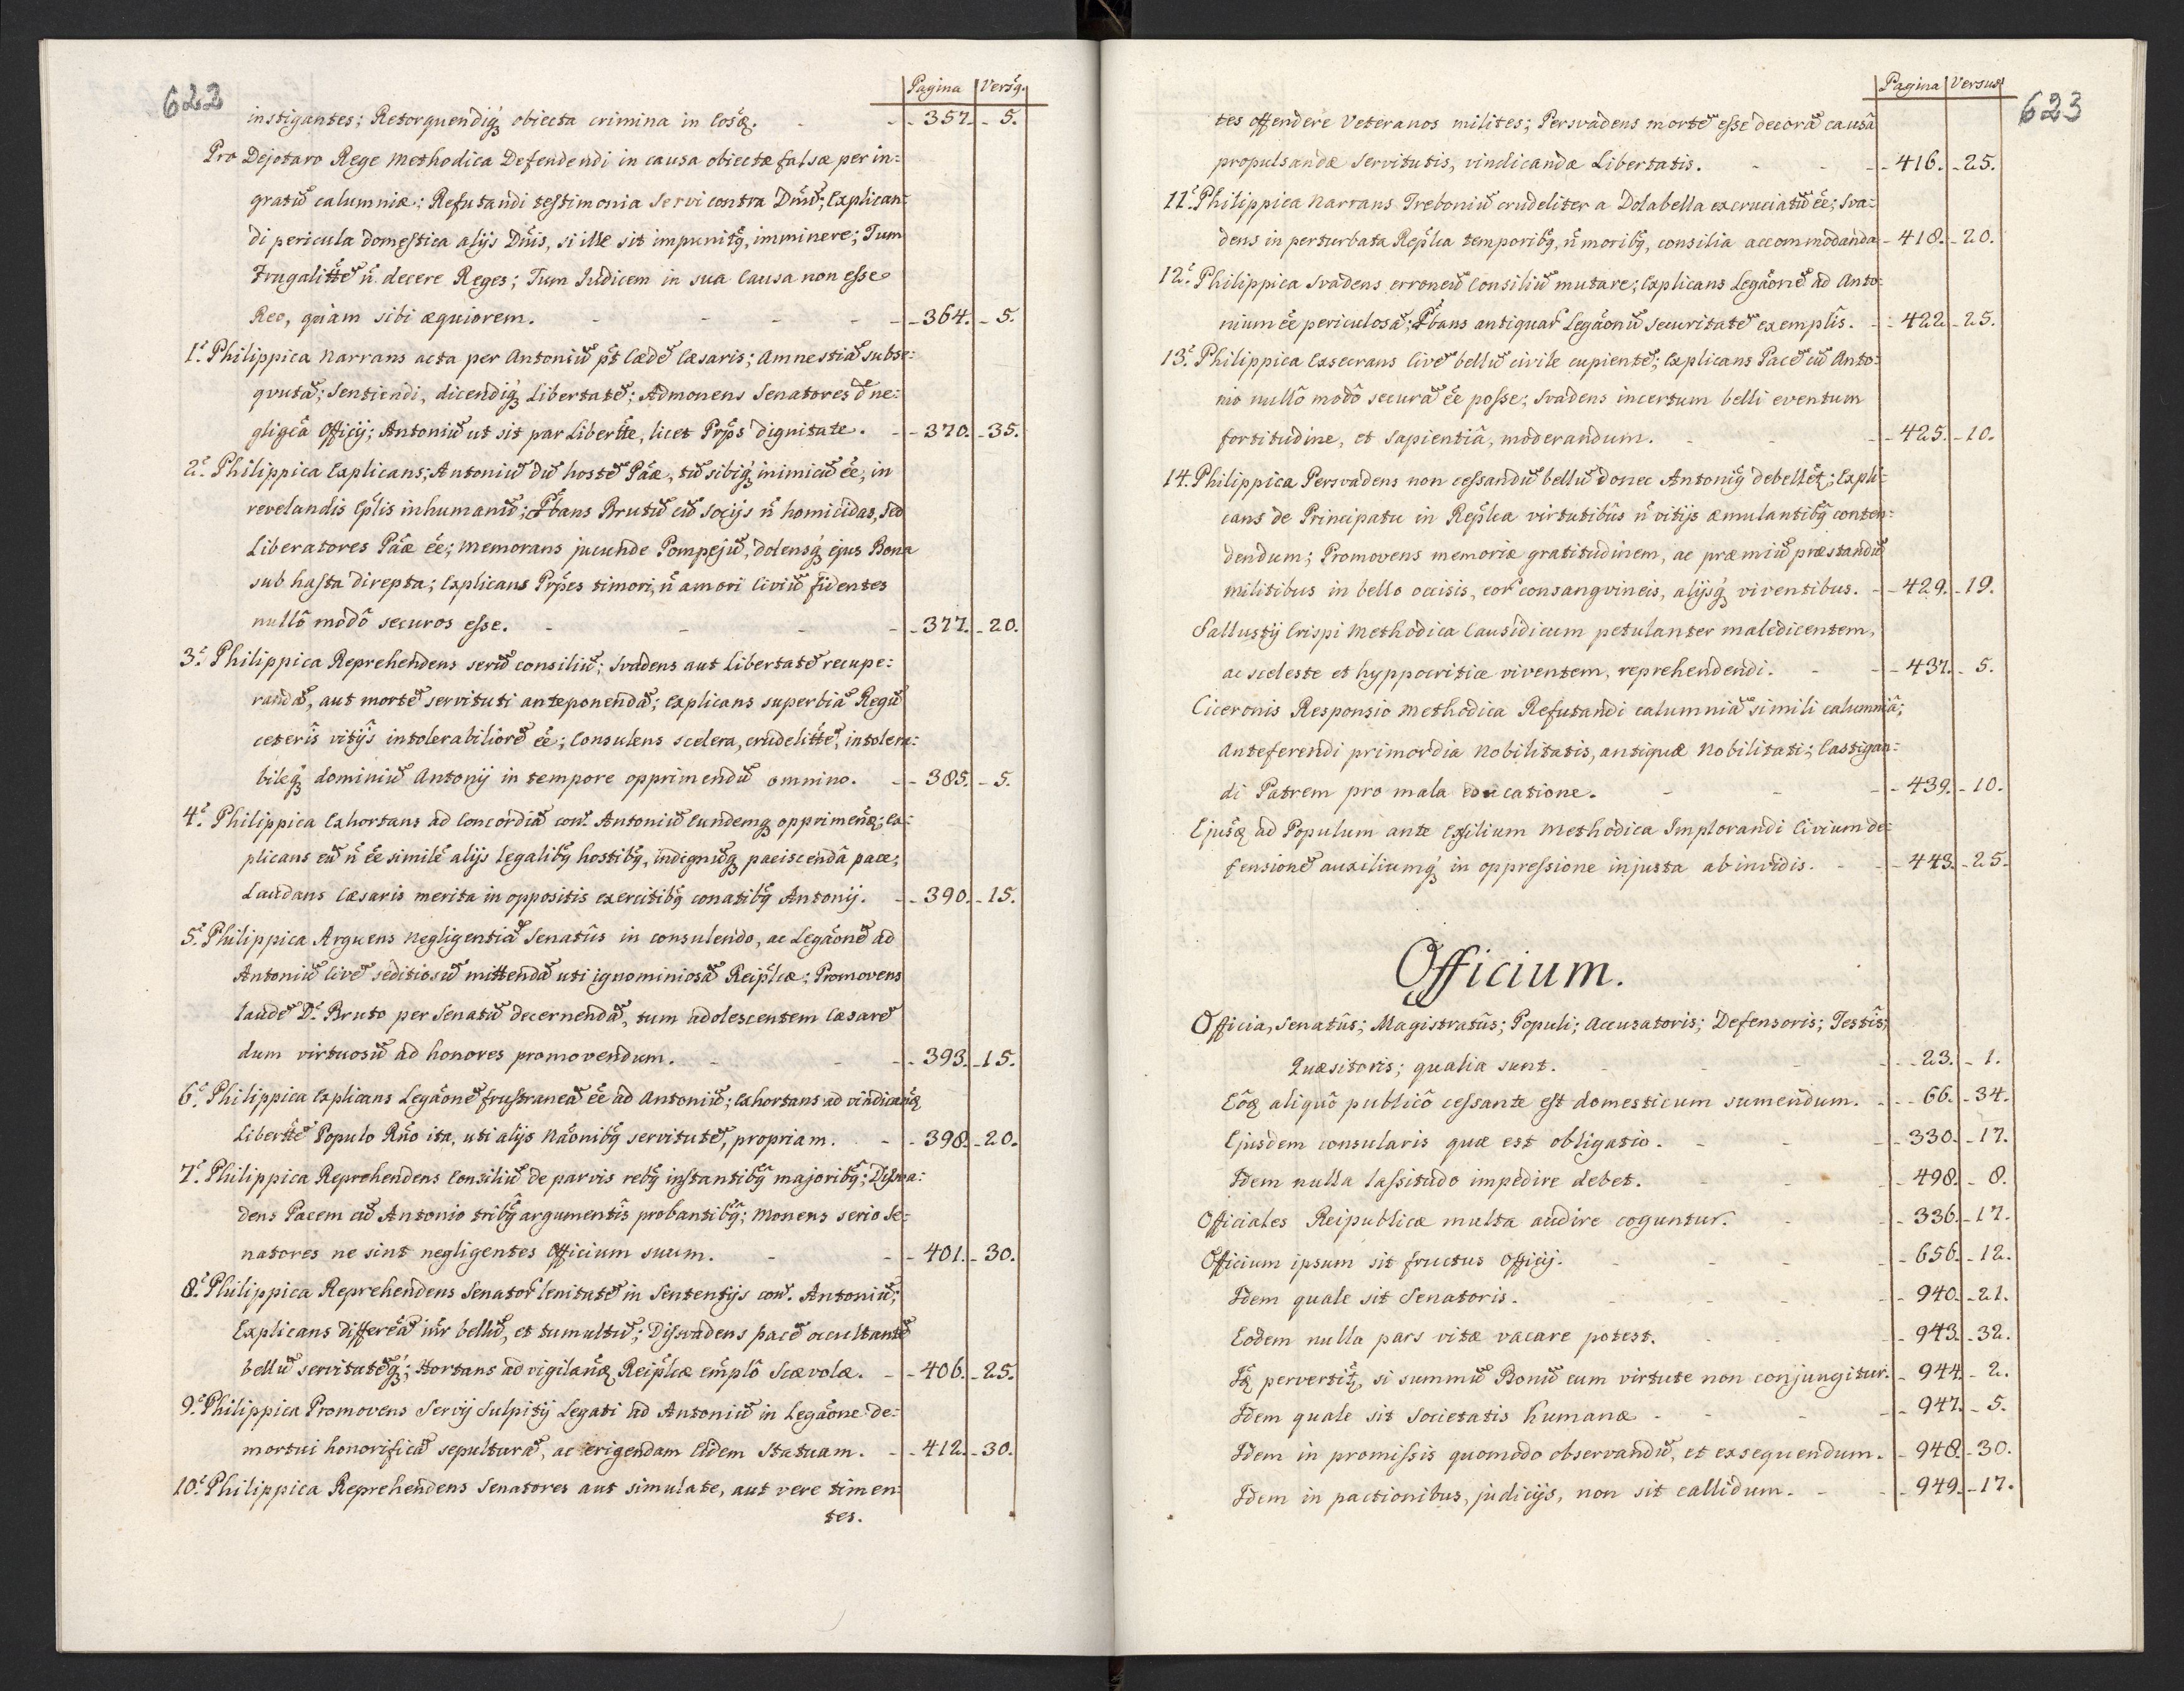 622
Pagina Versꝯ.
instigantes; Retorquendiq́ꝫ obiecta crimina in Eosdẽ. - - 357. - 5.
Pro Dejotaro Rege Methodica Defendendi in causa obiectæ falsæ per in=
gratũ calumniæ; Refutandi testimonia Servi contra Dnũ; Explican=
di pericula domestica alijs Dnis, si ille sit impunitꝯ, imminere; Tum
Frugalittẽ ñ decere Reges; Tum Iudicem in sua Causa non esse
Reo, quam sibi æquiorem. - - - - 364. - 5.
1.ª Philippica Narrans acta per Antoniũ p̃t Cædẽ Cæsaris; Amnestiã subse=
qvutã; Sentiendi, dicendiq́ꝫ Libertatẽ; Admonens Senatores d̃ ne=
gligẽa Officij; Antoniũ ut sit par Libertte, licet Prp̃s dignitate. - 370. - 35.
2.ª Philippica Explicans; Antoniũ dũ hostẽ Pãæ, tũ sibiq́ꝫ inimicũ ẽe, in
revelandis Eplis inhumanũ; P̃bans Brutũ cũ Socijs ñ homicidas, sed
Liberatores Pãæ ẽe; Memorans jucunde Pompejũ, dolensq́ꝫ ejus Bona
sub hasta direpta; Explicans Prp̃es timori, ñ amori Civiũ fidentes
nullô modô securos esse. - - - - 377. - 20.
3.ª Philippica Reprehendens serũ consiliũ; Svadens aut Libertatẽ recupe=
randã, aut mortẽ servituti anteponendã; Explicans superbiã Regũ
ceteris vitijs intolerabiliorẽ ẽe; Consulens scelera, crudelittẽ, intolera=
bileq́ꝫ dominiũ Antonij in tempore opprimendũ omnino. - 385. - 5.
4.ª Philippica Exhortans ad Concordiã con̄. Antoniũ Eundemq́ꝫ opprimendũ; Ex=
plicans eũ ñ ẽe similẽ alijs legalibꝯ hostibꝯ, indignũq́ꝫ paciscendâ pace;
Laudans Cæsaris merita in oppositis exercitibꝯ conatibꝯ Antonij. - 390. - 15.
5.ª Philippica Arguens negligentiã Senatûs in consulendo, ac Legãonẽ ad
Antoniũ Civẽ seditiosũ mittendã uti ignominiosã Reip̃læ; Promovens
laudẽ D. Bruto per Senatũ decernendã, tum adolescentem Cæsarẽ
dum virtuosũ ad honores promovendum. - - - 393. - 15.
6.ª Philippica Explicans Legãonẽ frustraneã ẽe ad Antoniũ; Exhortans ad vindicandã
Liberttẽ Populo Rño ita, uti alijs Nãonibꝯ servitutẽ, propriam. - 398. - 20.
7.ª Philippica Reprehendens Consiliũ de parvis rebꝯ instantibꝯ majoribꝯ; Disva=
dens Pacem cũ Antonio tribꝯ argumentis probantibꝯ; Monens serio Se=
natores ne sint negligentes Officium suum. - - 401. - 30.
8.ª Philippica Reprehendens Senator̃ lenitatẽ in Sententijs con̄. Antoniũ;
Explicans differẽã iñr bellũ, et tumultũ; Disvadens pacẽ occultantẽ
bellũ servitutẽq́ꝫ; Hortans ad vigilanã Reip̃læ emplô Scævolæ. - 406. - 25.
9.ª Philippica Promovens Servij Sulpitij Legati ad Antoniũ in Legãone de=
mortui honorificã sepulturã, ac erigendam Eidem Statuam. - 412. - 30.
10.ª Philippica Reprehendens Senatores aut simulate, aut vere timen=
tes.
623
Pagina Versus
tes offendere Veteranos milites; Persvadens mortẽ esse decorã causâ
propulsandæ Servitutis, vindicandæ Libertatis. - - 416. - 25.
11.ª Philippica Narrans Treboniũ crudeliter a Dolabella excruciatũ ẽe; Sva=
dens in perturbata Rep̃lca temporibꝯ, ñ moribꝯ, consilia accommodanda - 418. - 20.
12.ª Philippica Svadens erroneũ Consiliũ mutare; Explicans Legãonẽ ad Anto=
nium ẽe periculosã; P̃bans antiquar̃ Legãonũ securitatẽ exemplis. - 422. - 25.
13.ª Philippica Exsecrans Civẽ bellũ civile cupientẽ; Explicans Pacẽ cũ Anto=
nio nullô modô securã ẽe posse; Svadens incertum belli eventum
fortitudine, et Sapientiâ, moderandum. - - 425. - 10.
14. Philippica Persvadens non cessandũ bellũ donec Antoniꝯ debellet̃; Expli=
cans de Principatu in Rep̃lca virtutibûs ñ vitijs æmulantibꝯ conten=
dendum; Promovens memoriæ gratitudinem, ac præmiũ præstandũ
militibus in bello occisis, eor̃ consangvineis, alijsq́ꝫ viventibus. - 429. - 19.
Sallustij Crispi Methodica Causidicum petulanter maledicentem,
ac sceleste et hyppocritice viventem, reprehendendi. - - 437. - 5.
Ciceronis Responsio Methodica Refutandi calumniã simili calumniâ;
Anteferendi primordia Nobilitatis, antiquæ Nobilitati; Castigan=
di Patrem pro mala educatione. - - - 439. - 10.
Ejusdẽ ad Populum ante Exilium Methodica Implorandi Civium de=
fensionẽ auxiliumq́ꝫ in oppressione injusta ab invidis. - - 443. - 25.
Officium.
Officia, Senatûs; Magistratûs; Populi; Accusatoris; Defensoris; Testis;
Quæsitoris; qualia sunt. - - - 23. - 1.
Eôdẽ aliquô publicô cessante est domesticum sumendum. - 66. - 34.
Ejusdem consularis quæ est obligatio. - - - 330. - 17.
Idem nulla lassitudo impedire debet. - - - 498. - 8.
Officiales Reipublicæ multa audire coguntur. - - 336. - 17.
Officium ipsum sit fructus Officij. - - - 656. - 12.
Idem quale sit Senatoris. - - - - 940. - 21.
Eodem nulla pars vitæ vacare potest. - - - 943. - 32.
Idẽ pervertit̃, si summũ Bonũ cum virtute non conjungitur. - 944. - 2.
Idem quale sit Societatis humanæ - - - 947. - 5.
Idem in promissis quomodo observandũ, et exsequendum. - 948. - 30.
Idem in pactionibus, judicijs, non sit callidum. - - 949. - 17.